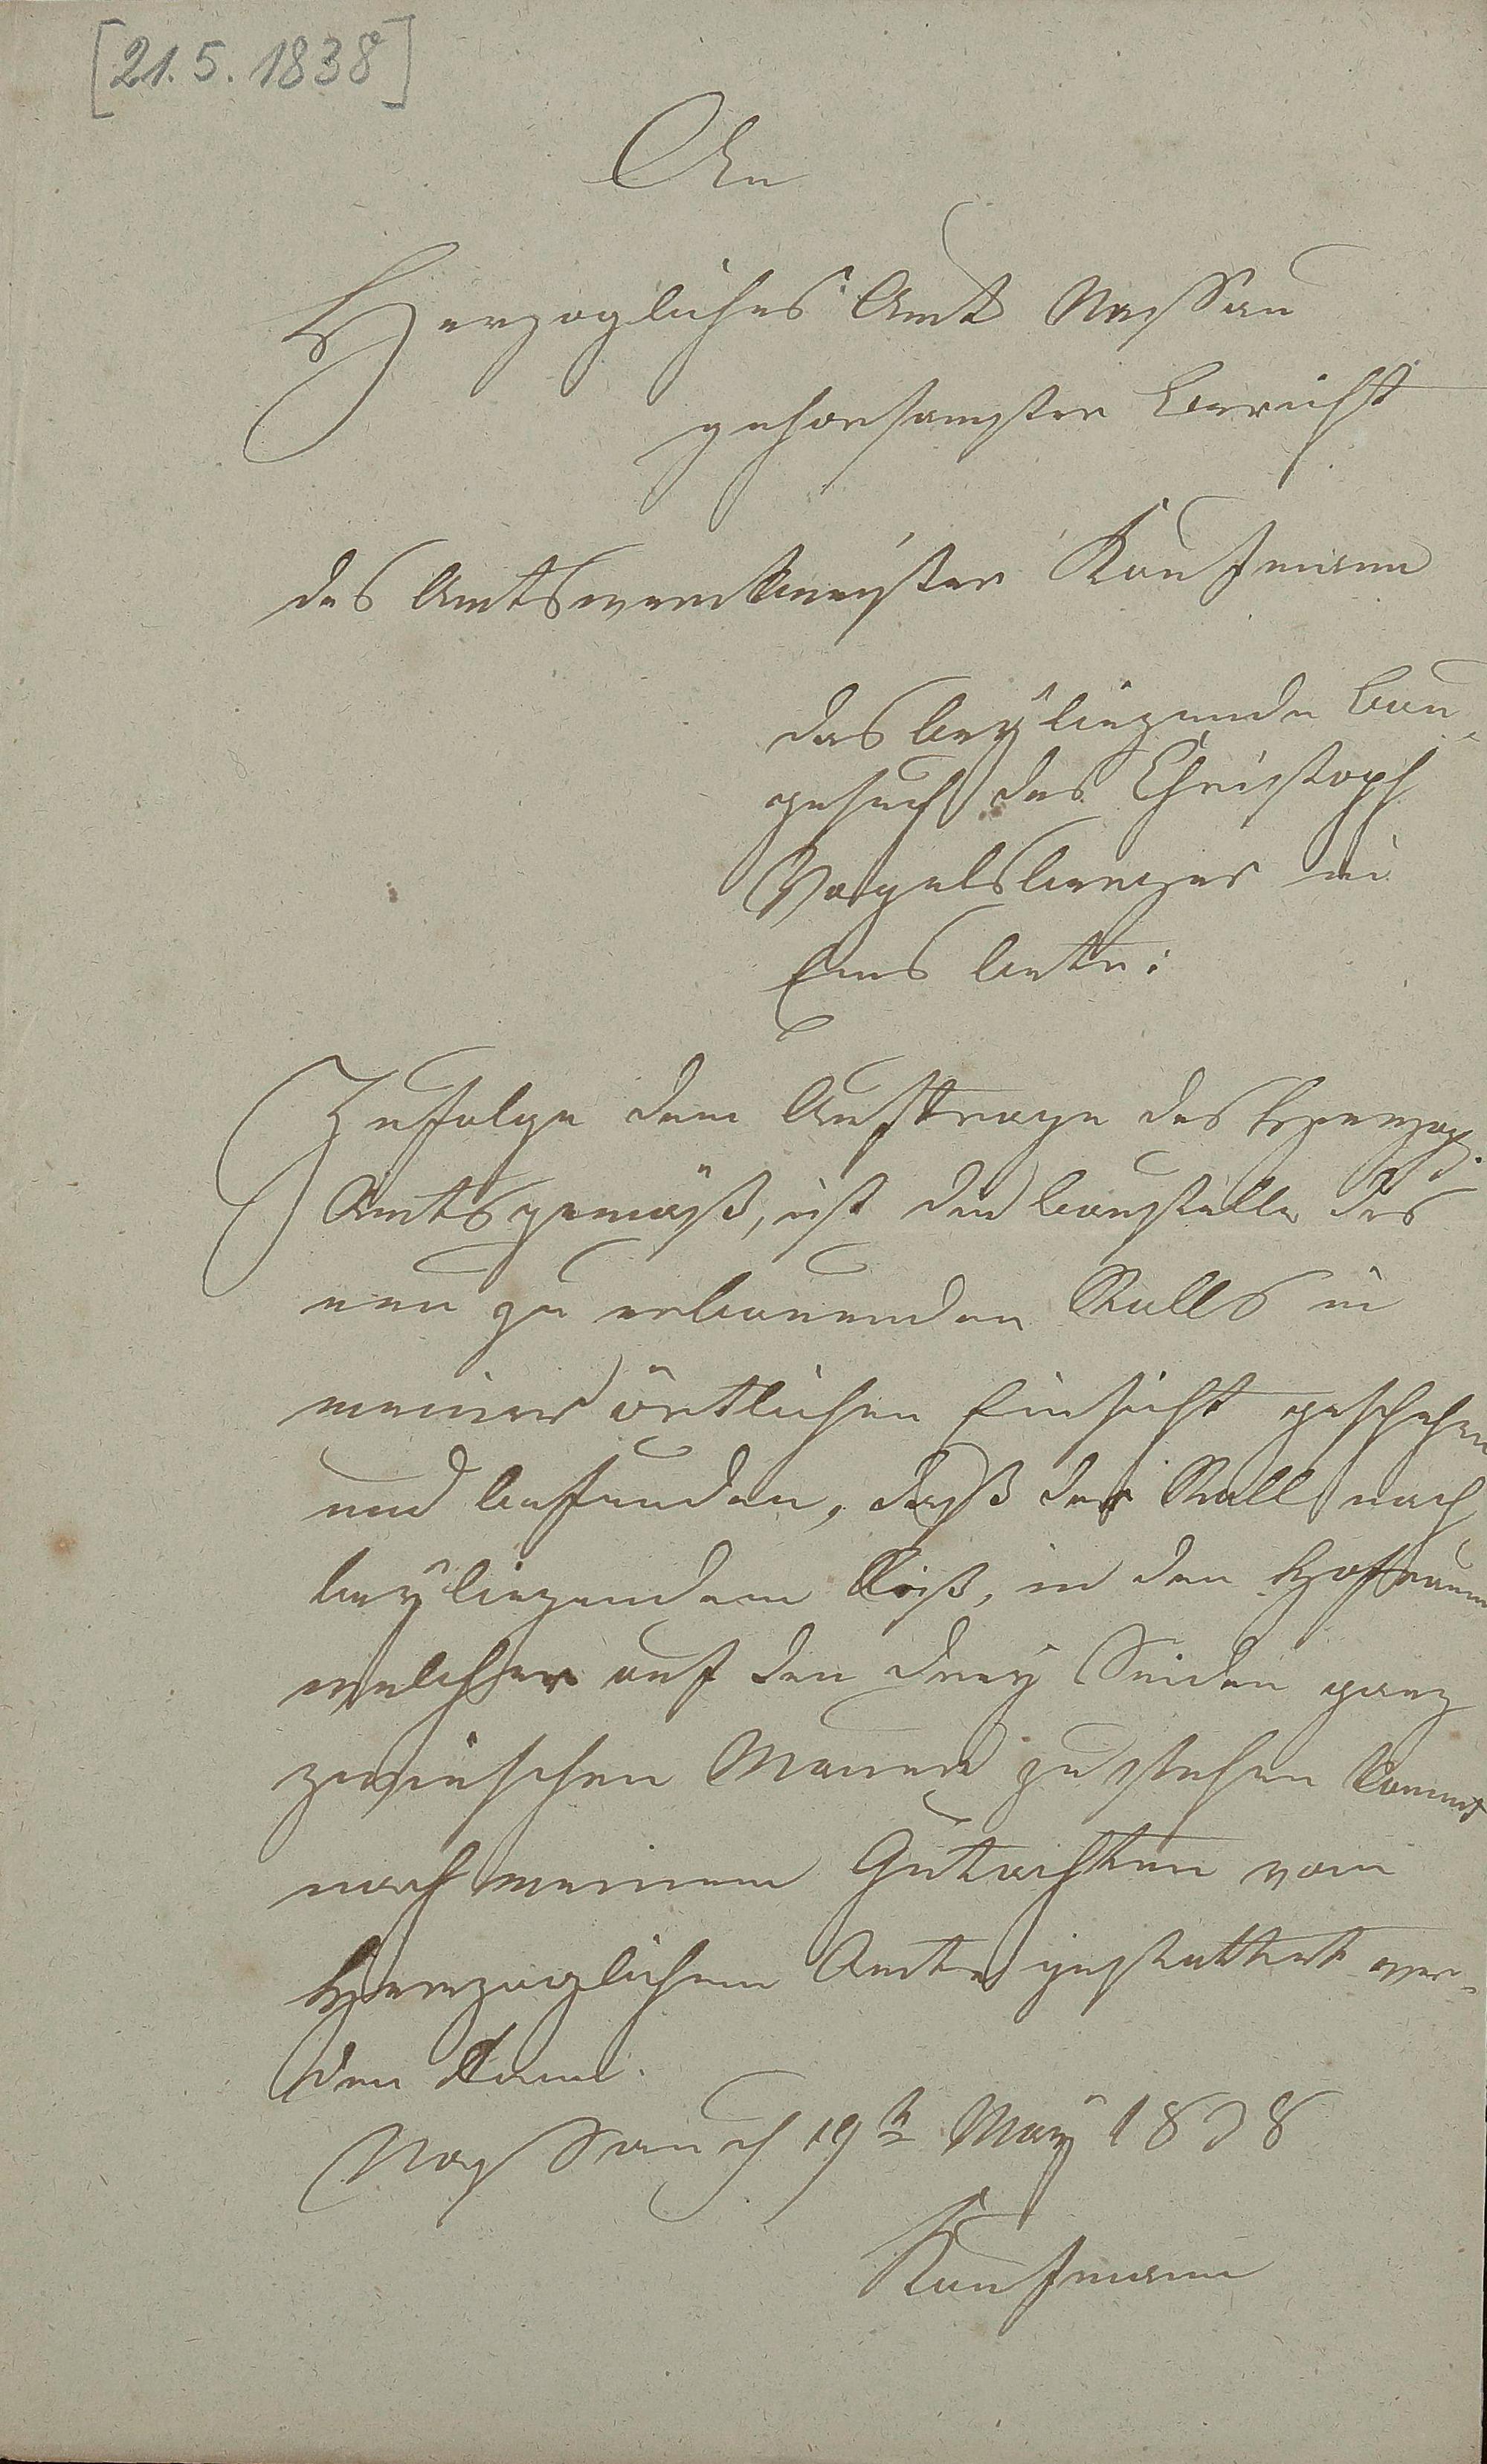 [21.5.1838]
An
Herzogliches Amt Nassau
gehorsamster Bericht
des Amtswerkmeister Kaufmann
das beÿliegende Bau-
gesuch des Christoph
Vogelsberger in
Ems betr:
Zufolge dem Auftrage des Herzogl.
Amts gemäß, ist die Baustelle des
neu zu erbauenden Stalls in
meiner örtlichen Einsicht geschehen
und befunden, daß der Stall nach
beÿliegendem Riß, in den Hofraum
welcher auf den dreÿ Seiden ganz
zwieschen Mauern zu stehen kommt
nach meinem Gutachten vom
Herzoglichen Amte gestattet wer-
den kann.
Nassau d 19t Maÿ 1838
Kaufmann